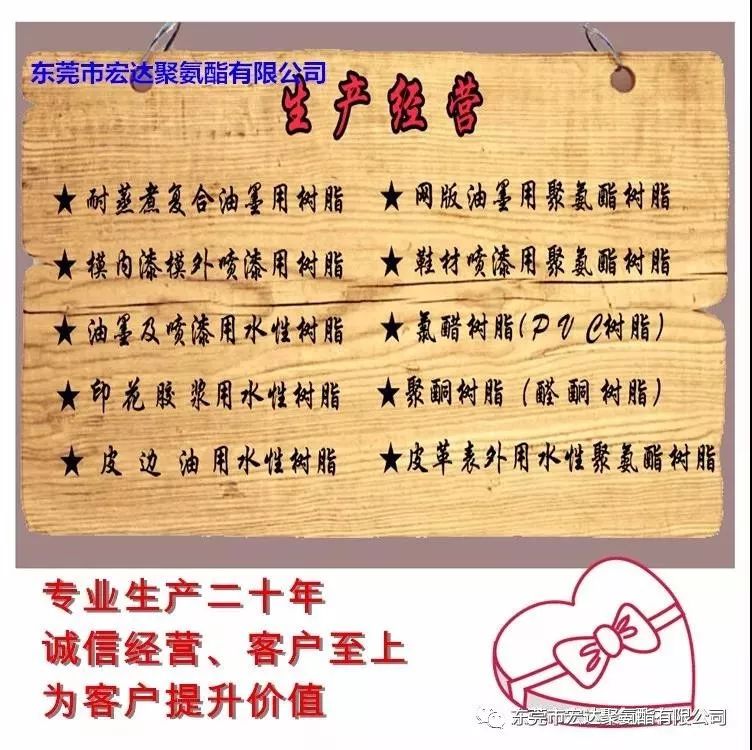 东莞市宏达聚氨酯有限公司
生产经营
★ 耐蒸煮复合油墨用树脂
★ 网版油墨用聚氨酯树脂
★ 模内漆模外喷漆用树脂
★ 鞋材喷漆用聚氨酯树脂
★ 油墨及喷漆用水性树脂
★ 氯醋树脂(PVC树脂)
★ 印花胶浆用水性树脂
★ 聚酮树脂（醛酮树脂）
★ 皮边油用水性树脂
★ 皮革表外用水性聚氨酯树脂
专业生产二十年
诚信经营、客户至上
为客户提升价值
东莞市宏达聚氨酯有限公司